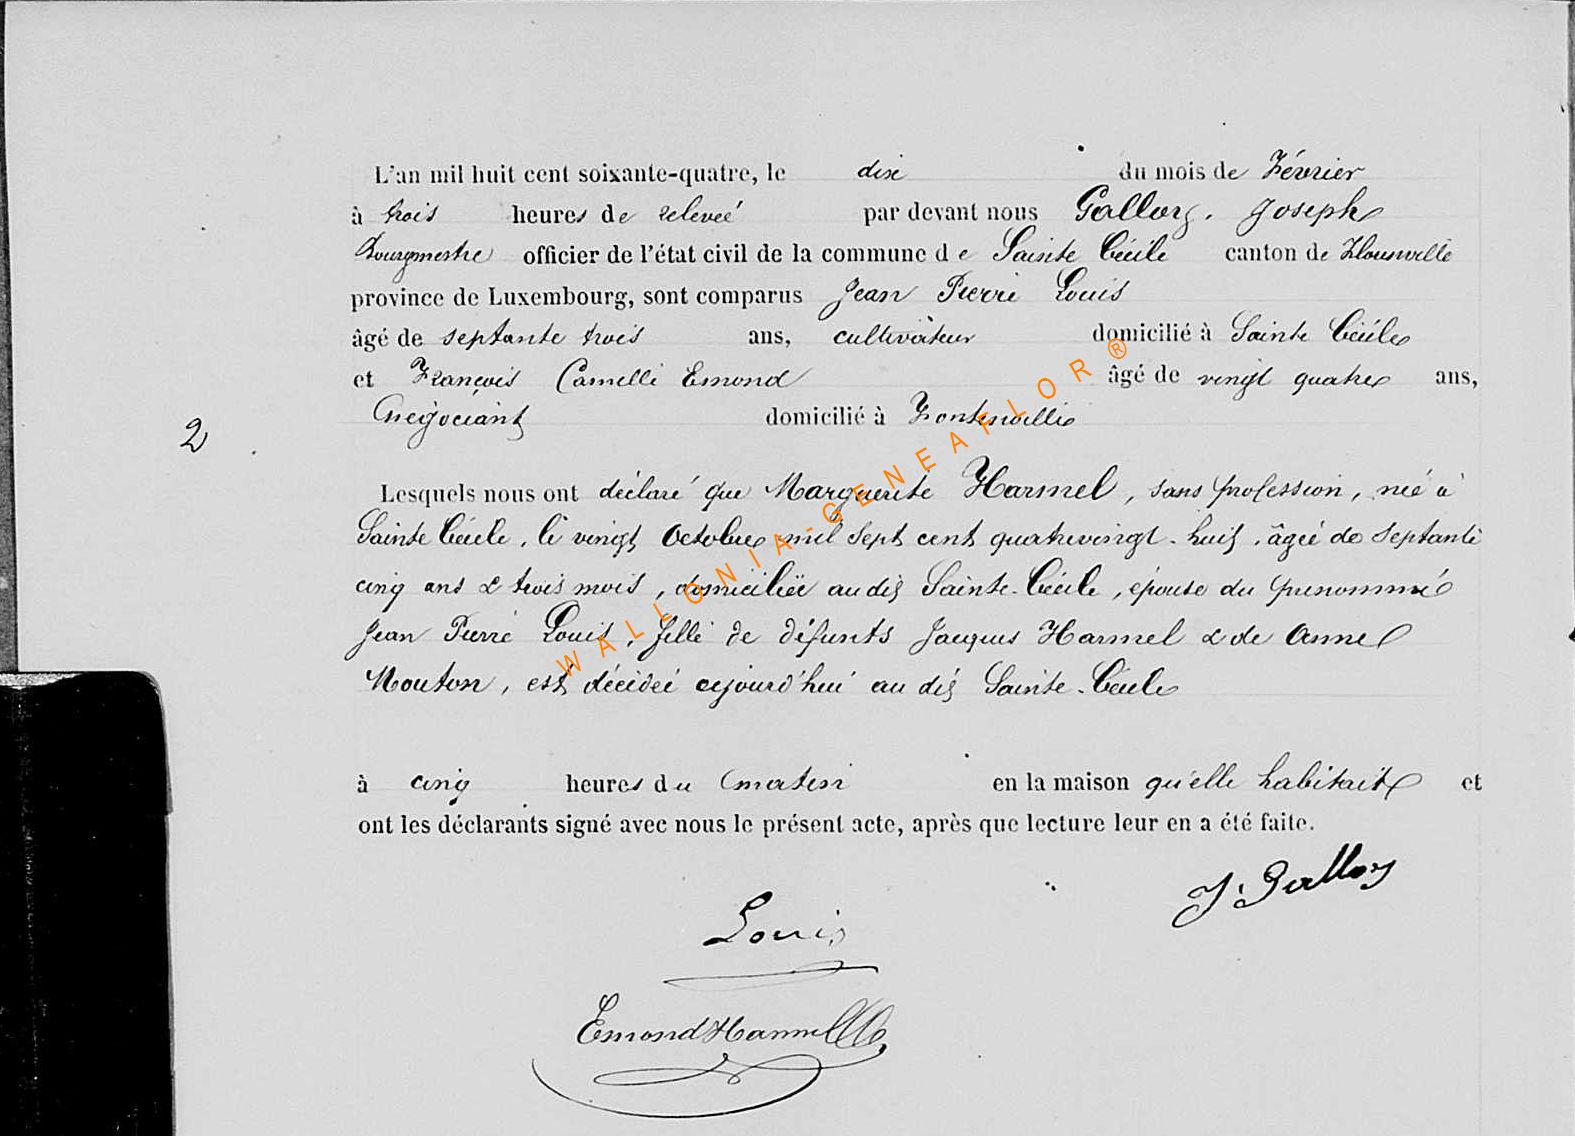 L'an mil huit cent soixante-quatre, le dix du mois de Février
à trois heures de relevée par devant nous Galloy, Joseph
Bourgmestre officier de l'état civil de la commune de Sainte Cécile canton de Florenville
province de Luxembourg, sont comparus Jean Pierre Louis
âgé de septante trois ans, cultivateur domicilié à Sainte Cécile
et François Camille Emond âgé de vingt quatre ans,
négociant domicilié à Fontenoille
2
Lesquels nous ont déclaré que Marguerite Harmel, sans profession, née à
Sainte Cécile, le vingt Octobre mil sept cent quatrevingt-huit, âgée de septante
cinq ans & trois mois, domiciliée au dit Sainte-Cécile, épouse du prénommé
Jean Pierre Louis, fille de défunts Jacques Harmel & de Anne
Mouton, est décédée aujourd'hui au dit Sainte-Cécile
à cinq heures du matin en la maison qu'elle habitait et
ont les déclarants signé avec nous le présent acte, après que lecture leur en a été faite.
J. Galloy
Louis
Emond Hannelle
WALLONIA-GENEAFLOR®